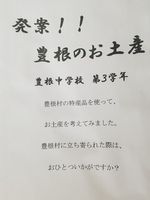 発案！！
豊根のお土産
豊根中学校 第3学年
豊根村の特産品を使って、
お土産を考えてみました。
豊根村に立ち寄られた際は、
おひとついかがですか？